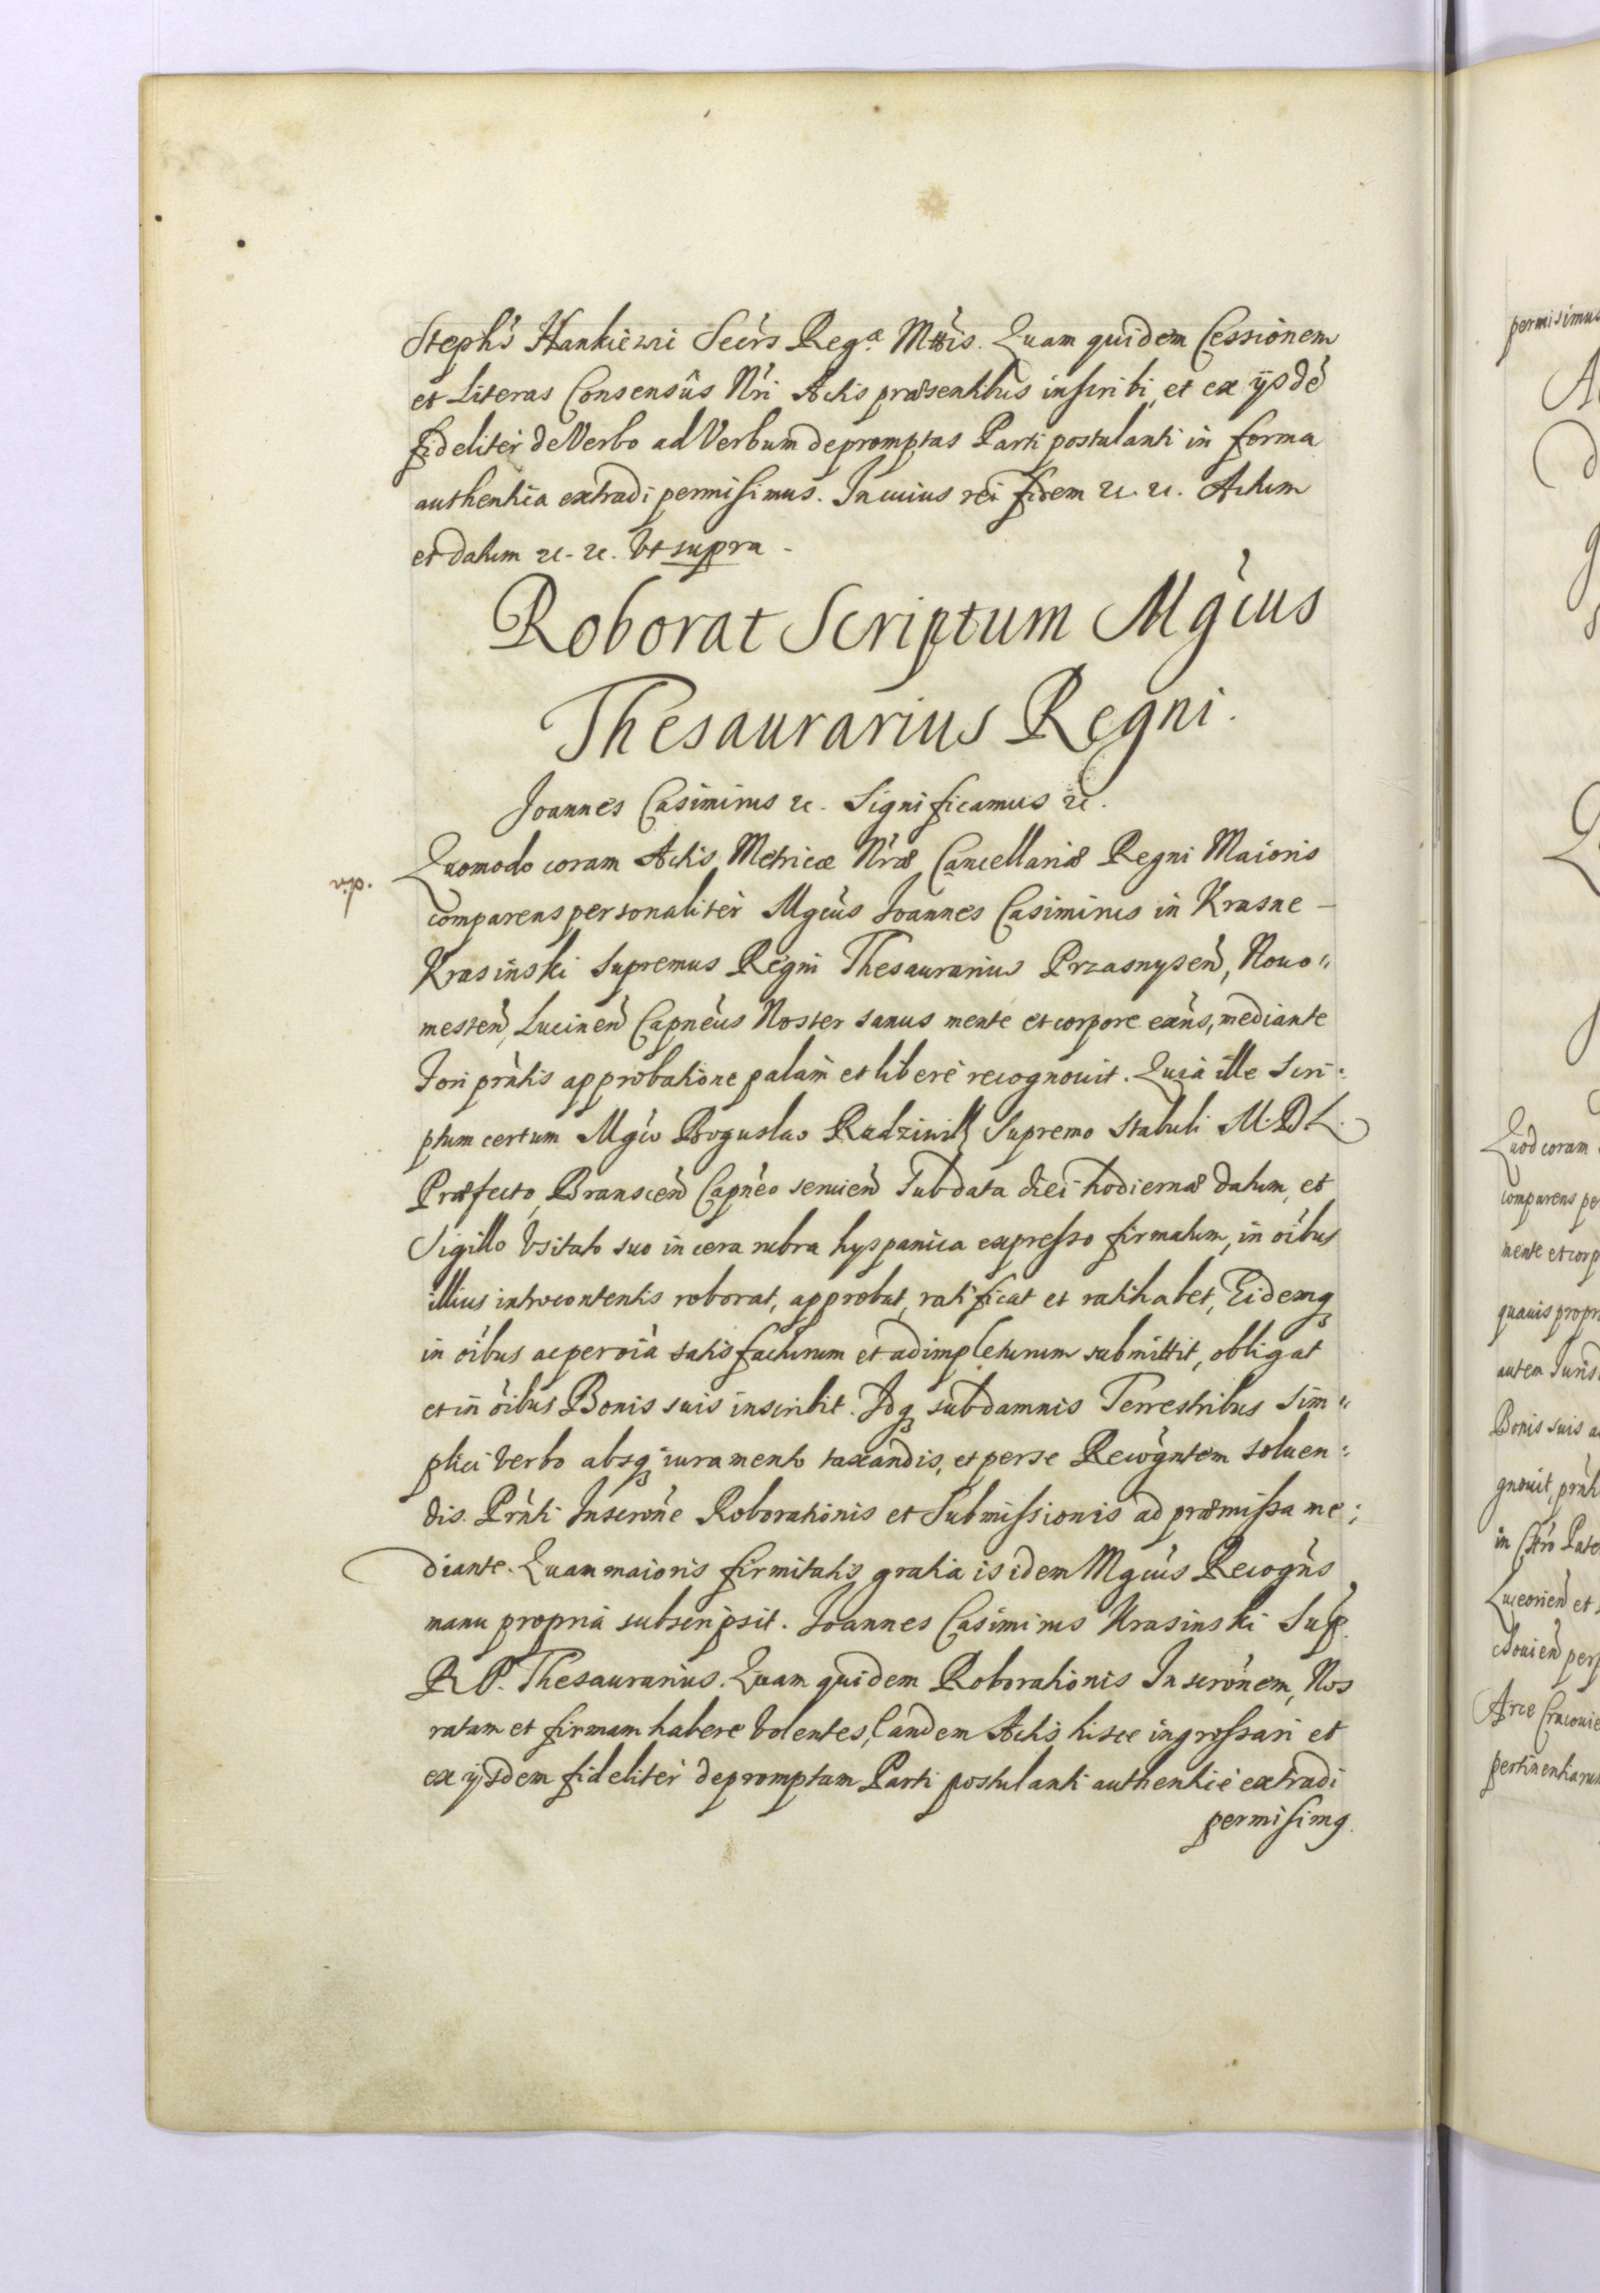 Steph's Hankiewi Secrs Regᵃ Mttis. Quam quidem Cessionem
et Literas Consensûs Nri Actis præsentibus inscribi, et ex ijsdē
fideliter de Verbo ad Verbum depromptas Parti postulanti in forma
authentica extradi permisimus. In cuius rei fidem &c. &c. Actum
et datum &c. &c. Vt supra.
Roborat Scriptum Mgcus
Thesaurarius Regni.
Joannes Casimirus &c. Significamus &c.
Quomodo coram Actis Metricæ Nræ Cancellariæ Regni Maioris
comparens personaliter Mgcus Joannes Casimirus in Krasne
Krasinski Supremus Regni Thesaurarius Przasnysen, Nouo"
mesten, Lucinen Capneus Noster sanus mente et corpore exns, mediante
Fori prntis approbatione palam et liberè recognouit. Quia ille Scri:
ptum certum Mgco Boguslao Radziwill Supremo Stabuli M.D.L.
Præfecto, Branscen Capneo seruien Sub data diei hodiernæ datum, et
Sigillo Vsitato suo in cera rubra hyspanica expresso firmatum, in oibus
illius introcontentis roborat, approbat, ratificat et ratihabet, Eidemq
in oibus ac per oia satisfacturum et adimpleturum submittit, obligat
et in oibus Bonis suis inscribit. Idq sub damnis Terrestribus Sim"
plici Verbo absq iuramento taxandis, et per se Recogntem soluen:
dis. Prnti Inscrone Roborationis et Submissionis ad præmissa me:
diante. Quam maioris firmitatis gratia is idem Mgcus Recogns
manu propria subscripsit. Joannes Casimirus Krasinski Sup.
R P. Thesaurarius. Quam quidem Roborationis Inscronem, Nos
ratam et firmam habere Volentes, Eandem Actis hisce ingrossari et
ex ijsdem fideliter depromptam Parti postulanti authenticè extradi
permisimq.
permisimus
Quod coram
comparens pe
mente et corp
quauis propr
autem Juris
Bonis suis a
gnouit, prnt
Luceorien et
Arce Cracouie
pertinentiarum